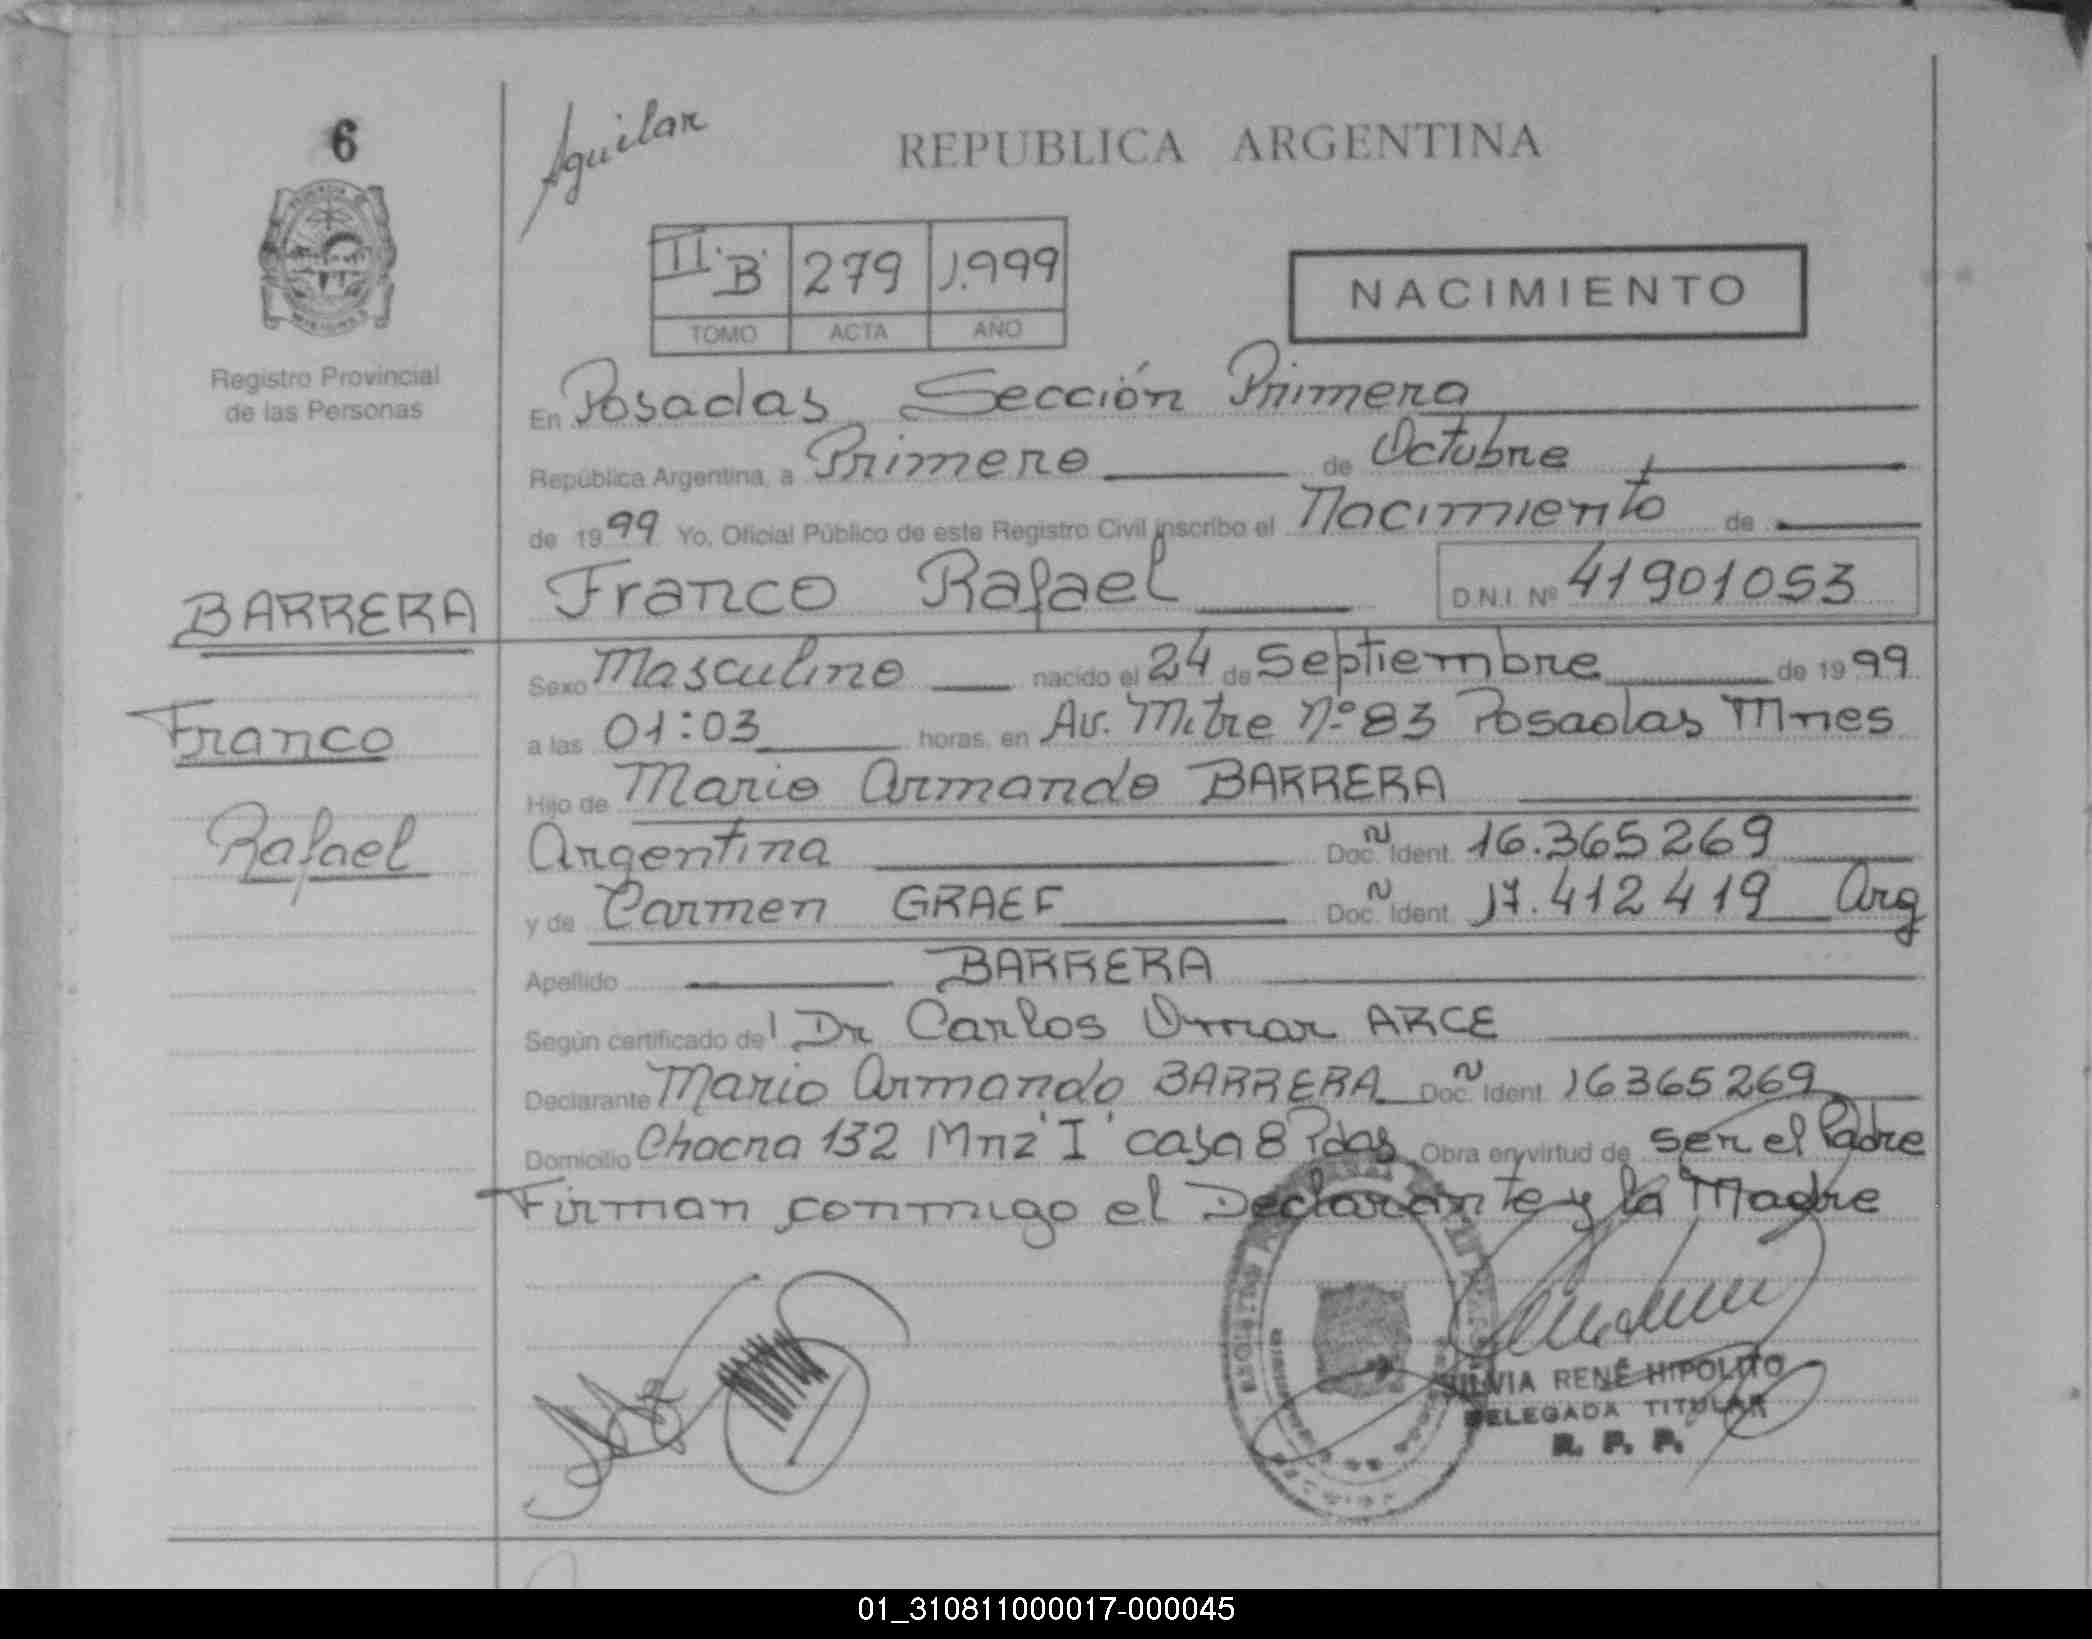 6
Aguilar
REPUBLICA ARGENTINA
II "B" 279 1.999
TOMO ACTA AÑO
NACIMIENTO
Registro Provincial
de las Personas
En Posadas Sección Primera
República Argentina, a Primero de Octubre
de 1999 Yo, Oficial Público de este Registro Civil inscribo el Nacimiento de
BARRERA
Franco Rafael D.N.I. Nº 41901053
Sexo Masculino nacido el 24 de Septiembre de 1999
Franco
a las 01:03 horas, en Av. Mitre Nº 83 Posadas Mnes
Hijo de Mario Armando BARRERA
Rafael
Argentina Doc. Ident. 16.365269
y de Carmen GRAEF Doc. Ident. 17.412419 Arg
Apellido BARRERA
Según certificado del Dr Carlos Omar ARCE
Declarante Mario Armando BARRERA Doc. Ident. 16365269
Domicilio Chacra 132 Mnz "I" casa 8 Pdas Obra en virtud de ser el Padre
Firman conmigo el Declarante y la Madre
SILVIA RENÉ HIPOLITO
DELEGADA TITULAR
R. P. P.
01_310811000017-000045